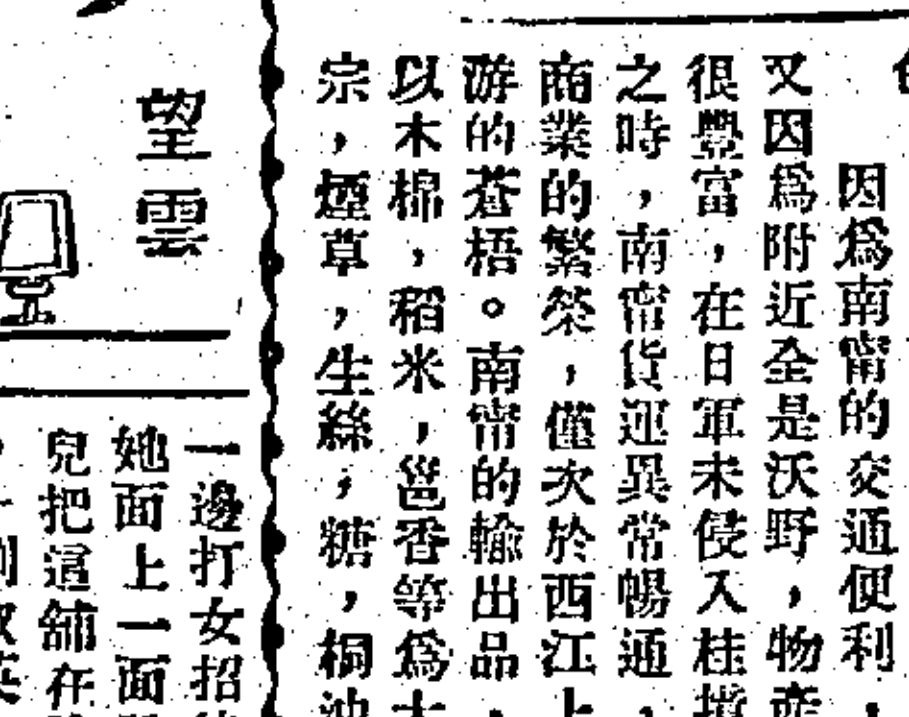 因爲南甯的交通便利，
又因爲附近全是沃野，物產
很豐富，在日軍未侵入桂
之時，南甯貨運異常暢通，
商業的繁榮，僅次於西江上
游的蒼梧。南甯的輸出品，
以木棉，稻米，邕香等爲大
宗，煙草，生絲，糖，桐油
望雲
一邊打女招
她面上一面
兒把這舖在